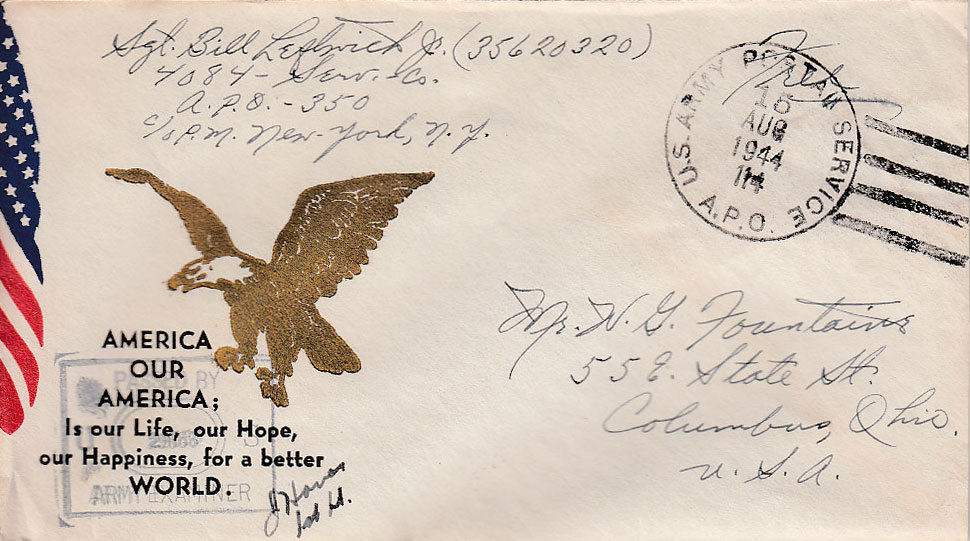 Sgt. Bill Leftwich Jr. (35620320)
4084 - Serv. Co.
A.P.O. - 350
c/o P.M. New York, N.Y.
Free
U.S. ARMY POSTAL SERVICE
A.P.O.
15
AUG
1944
Mr. H. G. Fountaine
55 E. State St.
Columbus, Ohio.
U. S. A.
AMERICA
OUR
AMERICA;
Is our Life, our Hope,
our Happiness, for a better
WORLD.
PASSED BY
ARMY EXAMINER
1st Lt.